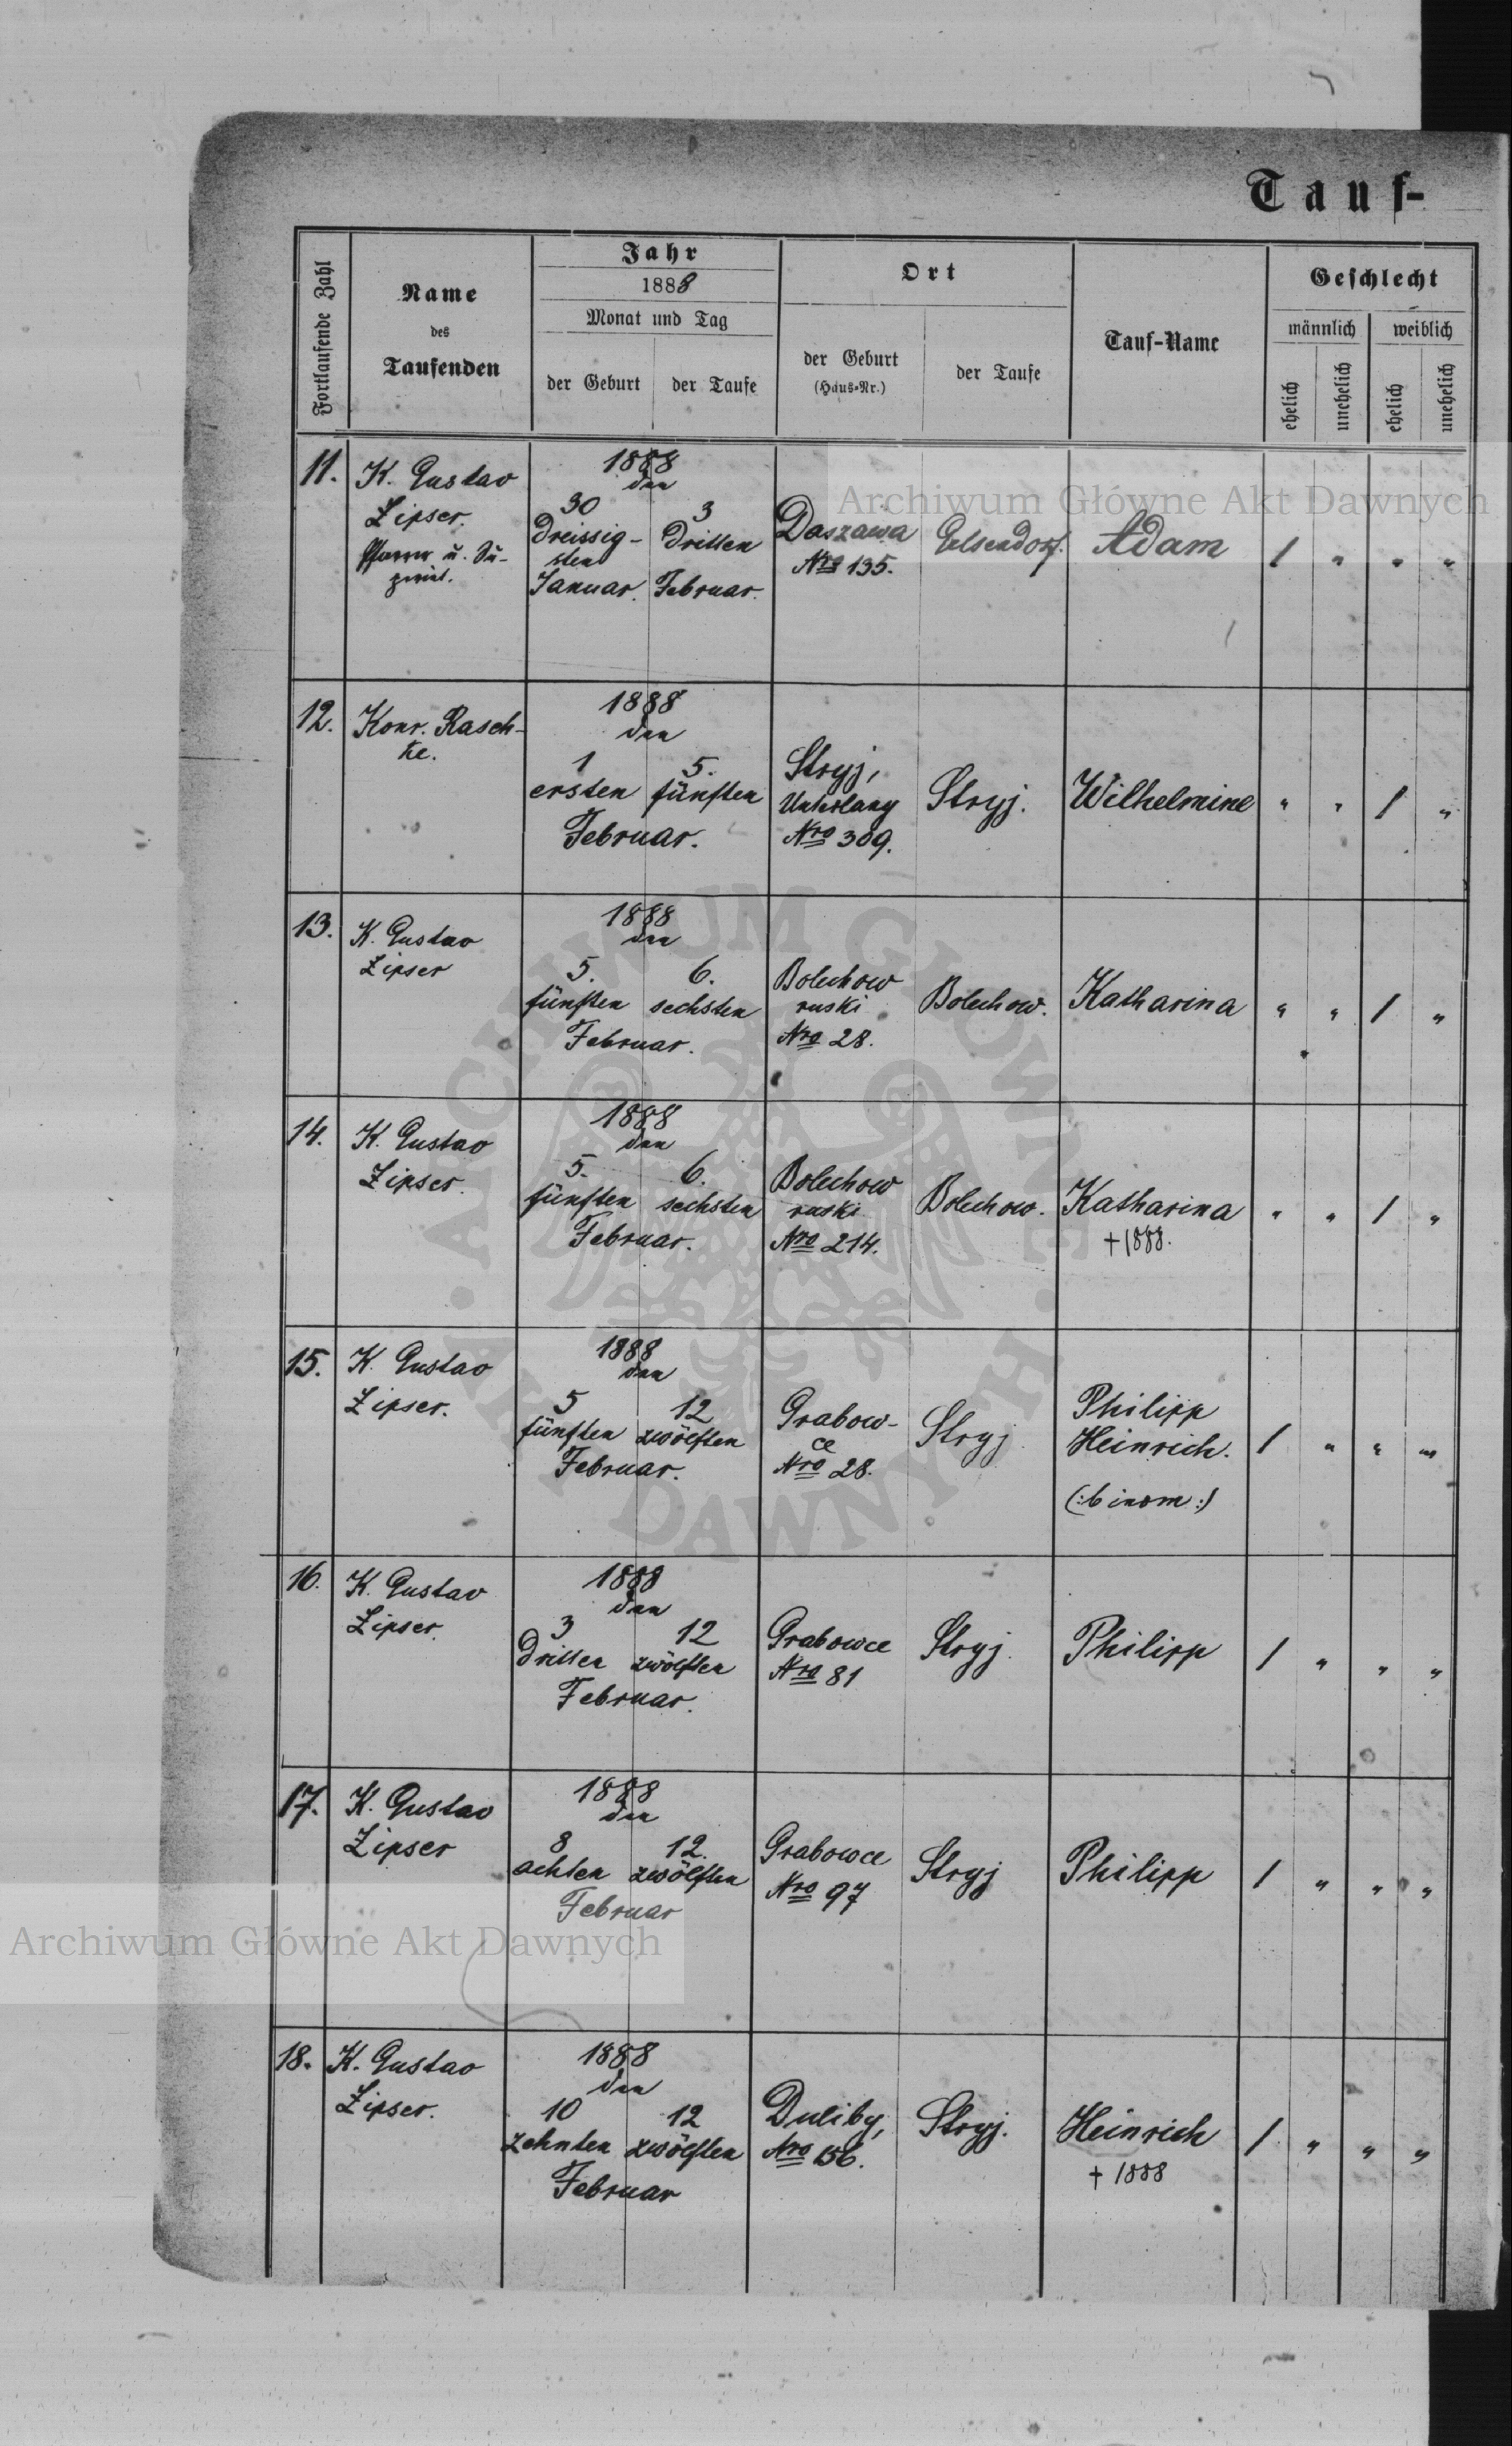 Tauf-
Fortlaufende Zahl
Name
des
Taufenden
Jahr
1888
Monat und Tag
der Geburt
der Taufe
Ort
der Geburt
(Haus-Nr.)
der Taufe
Tauf-Name
Geschlecht
männlich
weiblich
ehelich
unehelich
ehelich
unehelich
11.
K. Gustav
Zipser.
Pfarrer u.
1888
den
30
Dreissig-
sten
Januar.
3
Dritten
Februar.
Daszawa
Nro 135.
Gelsendorf.
Adam
/ " " "
12.
Konr. Rasch-
ke.
1888
den
1 5.
ersten fünften
Februar.
Stryj,
Unterlany
Nro 309.
Stryj.
Wilhelmine
" " / "
13.
K. Gustav
Zipser
1888
den
5. 6.
fünften sechsten
Februar.
Bolechow
ruski
Nro 28.
Bolechow.
Katharina
" " / "
14.
K. Gustav
Zipser.
1888
den
5. 6.
fünften sechsten
Februar.
Bolechow
ruski
Nro 214.
Bolechow.
Katharina
+1888.
" " / "
15.
K. Gustav
Zipser.
1888
den
5 12
fünften zwölften
Februar.
Grabow-
ce
Nro 28.
Stryj
Philipp
Heinrich.
(:binom:)
/ " " "
16.
K. Gustav
Zipser.
1888
den
3 12
Dritten zwölften
Februar.
Grabowce
Nro 81
Stryj.
Philipp
/ " " "
17.
K. Gustav
Zipser
1888
den
8 12.
achten zwölften
Februar
Grabowce
Nro 97
Stryj
Philipp
/ " " "
18.
K. Gustav
Zipser.
1888
den
10 12
zehnten zwölften
Februar
Duliby,
Nro 156.
Stryj.
Heinrich
+ 1888
/ " " "
Archiwum Główne Akt Dawnych
Archiwum Główne Akt Dawnych
ARCHIWUM GŁÓWNE
AKT DAWNYCH